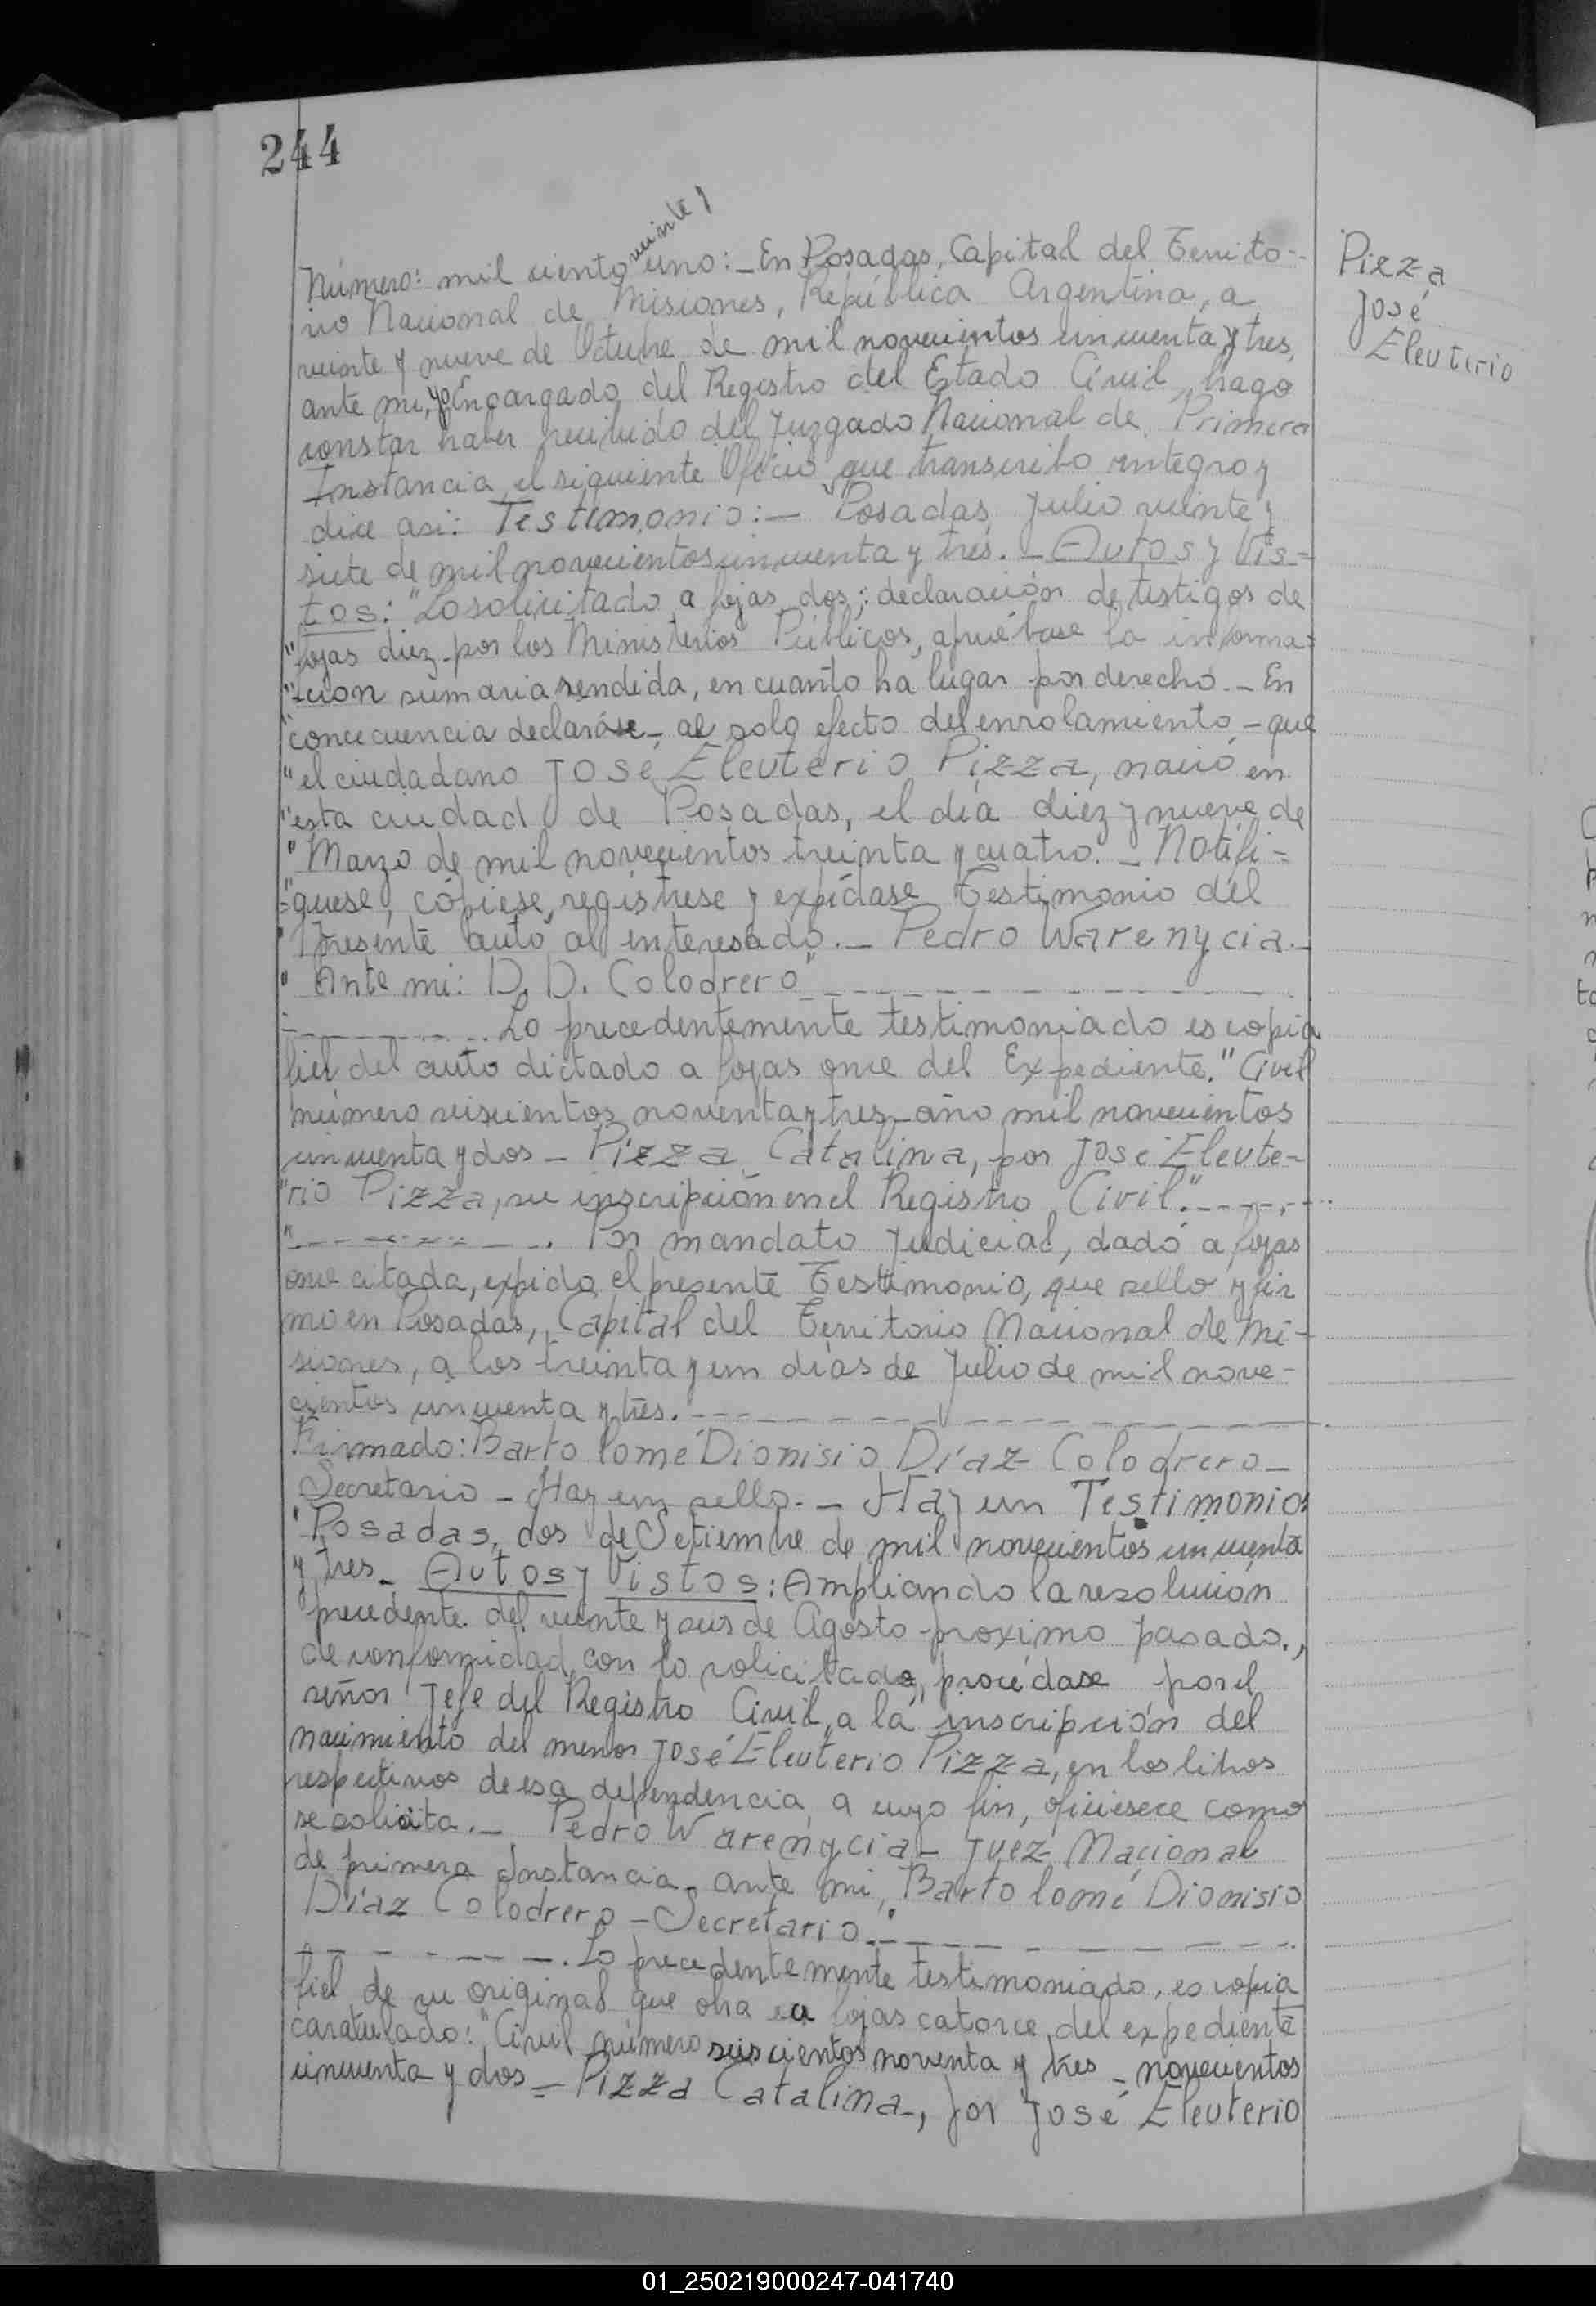 244
veinte y
Número: mil ciento uno:- En Posadas, Capital del Territo-
rio Nacional de Misiones, República Argentina, a
veinte y nueve de Octubre de mil novecientos cincuenta y tres,
ante mi, yo Encargado del Registro del Estado Civil, hago
constar haber recibido del Juzgado Nacional de Primera
Instancia el siguiente Oficio que transcribo integro y
dice asi: Testimonio:- "Posadas Julio veinte y
siete de mil novecientos cincuenta y tres. - Autos y Vis-
tos: "Lo solicitado a fojas dos; declaración de testigos de
"fojas diez por los Ministerios Públicos, apruébase la informa-
"ción sumaria rendida, en cuanto ha lugar por derecho. - En
"concecuencia declaráse - al solo efecto del enrolamiento - que
"el ciudadano José Eleuterio Pizza, nació en
"esta ciudad de Posadas, el día diez y nueve de
"Marzo de mil novecientos treinta y cuatro. - Notifi-
"quese, cópiese, registrese y expídase Testimonio del
"presente auto al interesado. - Pedro Warenycia. -
"Ante mi: D. D. Colodrero"
Lo precedentemente testimoniado es copia
fiel del auto dictado a fojas once del Expediente." Civil
número seiscientos noventa y tres - año mil novecientos
cincuenta y dos - Pizza Catalina, por José Eleute-
"rio Pizza, su inscripción en el Registro Civil".
Por mandato Judicial, dado a fojas
once citada, expido el presente Testimonio, que sello y fir
mo en Posadas, Capital del Territorio Nacional de Mi-
siones, a los treinta y un días de Julio de mil nove-
cientos cincuenta y tres.
Firmado: Bartolomé Dionisio Díaz Colodrero -
Secretario - Hay un sello. - Hay un Testimonio:
"Posadas, dos de Setiembre de mil novecientos cincuenta
y tres - Autos y Vistos: Ampliando la resolución
precedente del veinte y seis de Agosto proximo pasado.,
de conformidad con lo solicitado, procédase por el
señor Jefe del Registro Civil, a la inscripción del
nacimiento del menor José Eleuterio Pizza, en los libros
respectivos de esa dependencia a cuyo fin, oficiesece como
se solicita. - Pedro Warenycia - Juez Nacional
de primera Instancia - ante mi, Bartolomé Dionisio
Díaz Colodrero - Secretario."
Lo precedentemente testimoniado, es copia
fiel de su original que obra a fojas catorce del expediente
caratulado: "Civil número seiscientos noventa y tres - novecientos
cincuenta y dos - Pizza Catalina -, por José Eleuterio
Pizza
José
Eleuterio
01_250219000247-041740